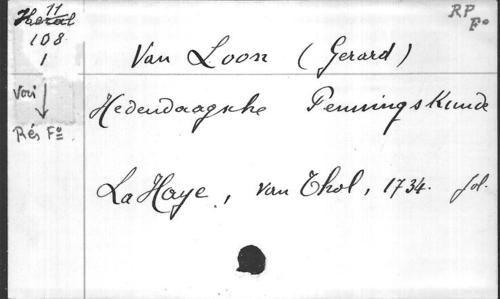 11
108
1
Voir
Rés Fº
RP
Fº
Van Loon (Gerard)
Hedendaagsche Penningskunde
La Haye, van Thol, 1734. fol.